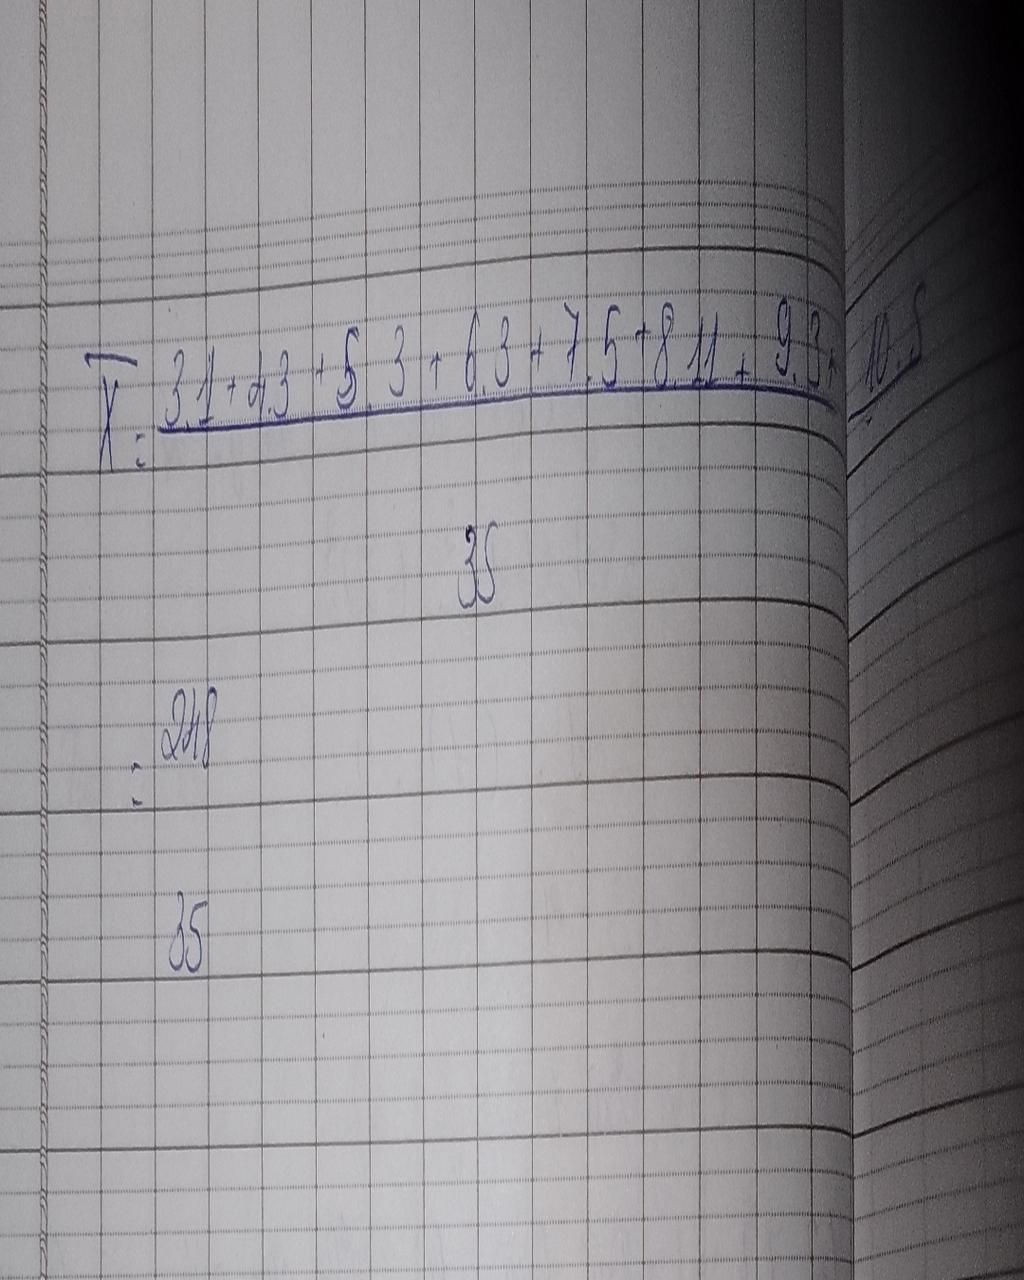 X̄ = 3.1 + 4.3 + 5.3 + 6.3 + 7.5 + 8.11 + 9.3 + 10.5
35
= 248
35